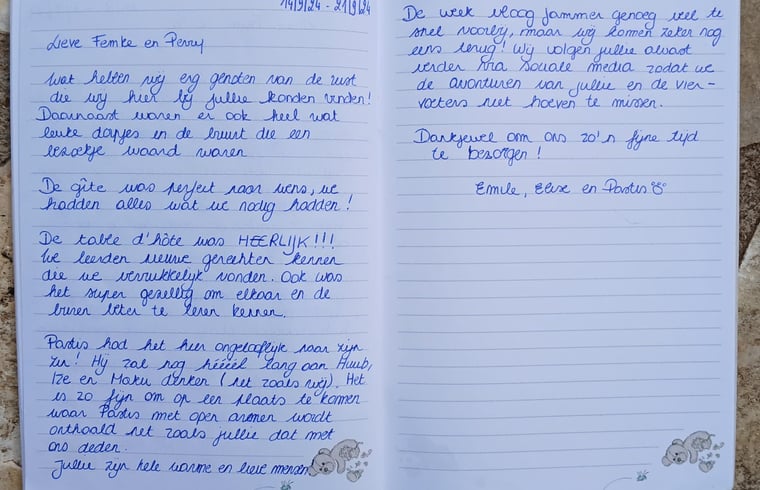 14/9/24 - 21/9/24
Lieve Femke en Perry
Wat hebben wij erg genoten van de rust
die wij hier bij jullie konden vinden!
Daarnaast waren er ook heel wat
leuke dorpjes in de buurt die een
bezoekje waard waren
De gîte was perfect naar wens, we
hadden alles wat we nodig hadden!
De table d'hôte was HEERLIJK!!!
We leerden nieuwe gerechten kennen
die we verrukkelijk vonden. Ook was
het super gezellig om elkaar en de
buren beter te leren kennen.
Pastis had het hier ongelooflijk naar zijn
zin! Hij zal nog hééél lang aan Huub,
Ize en Maku denken (net zoals wij). Het
is zo fijn om op een plaats te komen
waar Pastis met open armen wordt
onthaald net zoals jullie dat met
ons deden.
Jullie zijn hele warme en lieve mensen
De week vloog jammer genoeg veel te
snel voorbij, maar wij komen zeker nog
eens terug! Wij volgen jullie alvast
verder via sociale media zodat we
de avonturen van jullie en de vier-
voeters niet hoeven te missen.
Dankjewel om ons zo'n fijne tijd
te bezorgen!
Emile, Elise en Pastis